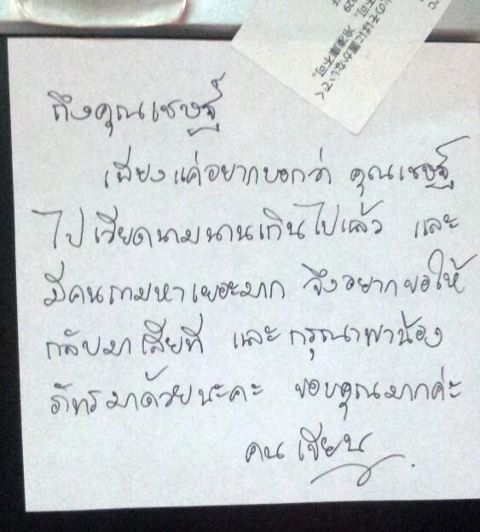 のそばに置かないで
不可。冷凍庫不可。
ถึงคุณเชษฐ์
เพียงแค่อยากบอกว่า คุณเชษฐ์
ไปเวียดนามนานเกินไปแล้ว และ
มีคนถามหาเยอะมาก จึงอยากขอให้
กลับมาเสียที และกรุณาพาน้อง
ภัทรมาด้วยนะคะ ขอบคุณมากค่ะ
คนเขียน